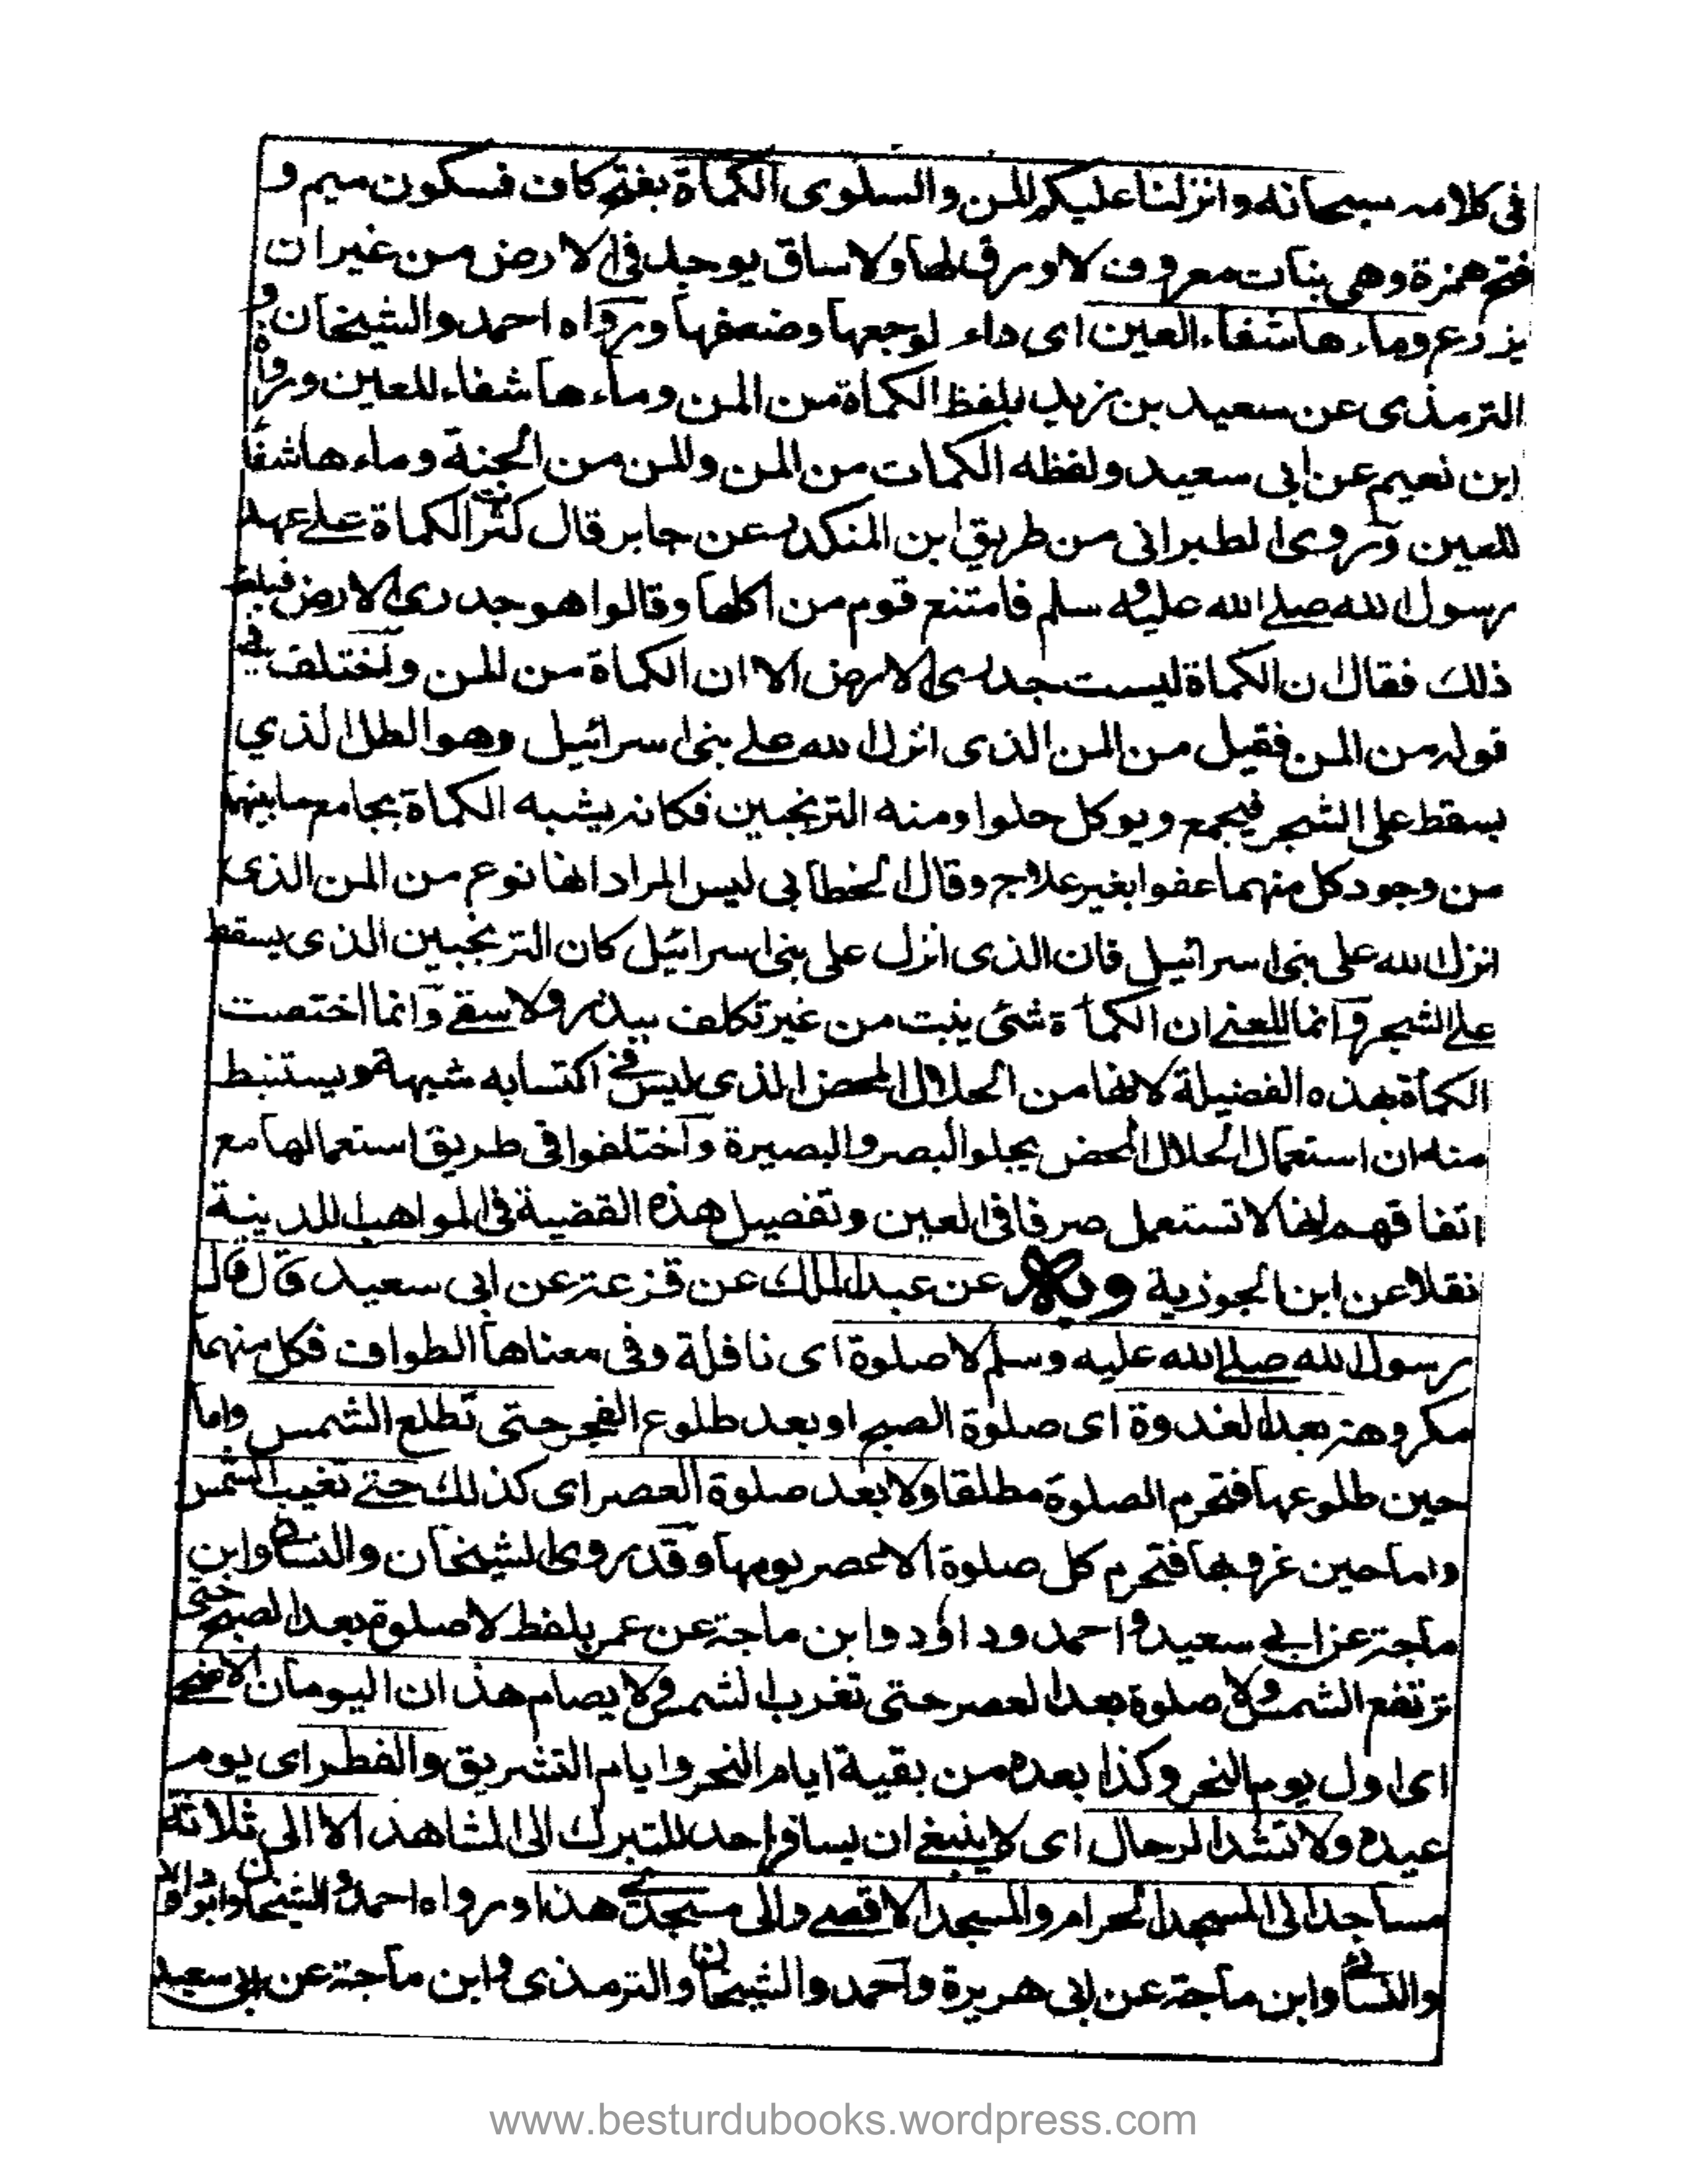 فى كلامه سبحانه وانزلنا عليكم المن والسلوى الكماة بفتح كاف فسكون ميم و
فتح همزة وهى بنات معروف لا ورق لها ولا ساق يوجد فى الارض من غير ان
يزرع وماءها شفاء العين اى داء لوجعها وضعفها ورواه احمد والشيخان و
الترمذى عن سعيد بن زيد بلفظ الكماة من المن وماءها شفاء للعين ورواه
ابن نعيم عن ابى سعيد ولفظه الكمات من المن والمن من الجنة وماءها شفا
للعين وروى الطبرانى من طريق ابن المنكدر عن جابر قال كثرت الكماة على عهد
رسول الله صلى الله عليه و سلم فامتنع قوم من اكلها وقالوا هو جدرى الارض فبلغه
ذلك فقال ان الكماة ليست جدرى الارض الا ان الكماة من المن واختلف فى
قوله من المن فقيل من المن الذى انزل الله على بنى اسرائيل وهو الطل الذي
يسقط على الشجر فيجمع ويوكل حلوا ومنه الترنجبين فكانه يشبه الكماة بجامع ما بينهما
من وجود كل منهما عفوا بغير علاج وقال الخطابى ليس المراد انها نوع من المن الذى
انزل الله على بنى اسرائيل فان الذى انزل على بنى اسرائيل كان الترنجبين الذى يسقط
على الشجر وانما المعنى ان الكماة شئ ينبت من غير تكلف ببذر ولا سقى وانما اختصت
الكماة بهذه الفضيلة لانها من الحلال المحض الذى ليس فى اكتسابه شبهة ويستنبط
منه ان استعمال الحلال المحض يجلو البصر والبصيرة واختلفوا فى طريق استعمالها مع
اتفاقهم انها لا تستعمل صرفا فى العين وتفصيل هذه القضية فى المواهب اللدينية
نقلا عن ابن الجوزية وبه عن عبد الملك عن قزعة عن ابى سعيد قال قال
رسول الله صلى الله عليه وسلم لا صلوة اى نافلة وفى معناها الطواف فكل منهما
مكروهة بعد الغدوة اى صلوة الصبح او بعد طلوع الفجر حتى تطلع الشمس واما
حين طلوعها فتحرم الصلوة مطلقا ولا بعد صلوة العصر اى كذلك حتى تغيب الشمس
واما حين غروبها فتحرم كل صلوة الا عصر يومها وقد روى الشيخان والنسائى وابن
ماجة عن ابى سعيد و احمد ود اؤد وابن ماجة عن عمر بلفظ لا صلوة بعد الصبح حتى
ترتفع الشمس ولا صلوة بعد العصر حتى تغرب الشمس ولا يصام هذان اليومان الاضحى
اى اول يوم النحر وكذا بعده من بقية ايام النحر وايام التشريق والفطر اى يوم
عيده ولا تشد الرحال اى لا ينبغى ان يسافر احد للتبرك الى المشاهد الا الى ثلاثة
مساجد الى المسجد الحرام والمسجد الاقصى والى مسجدى هذا ورواه احمد و الشيخان وابوداود
والنسائى وابن ماجة عن ابى هريرة واحمد والشيخان والترمذى وابن ماجة عن ابى سعيد
www.besturdubooks.wordpress.com